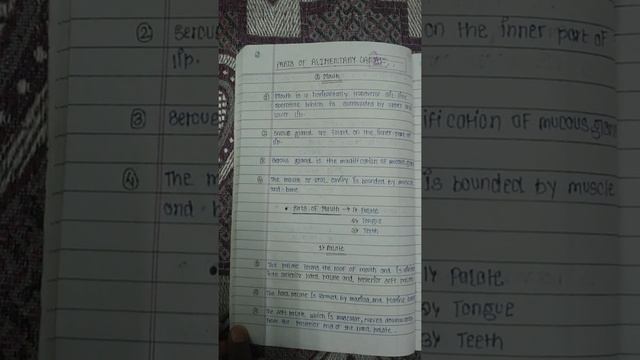 PARTS OF ALIMENTARY CANAL
① Mouth
① Mouth is a horizontally transverse slit like
aperture which is surrounded by upper and
lower lip.
② Serous gland are found on the inner part of
lip.
③ Serous gland is the modification of mucous gland
④ The mouth or oral cavity is bounded by muscle
and bone.
• Parts of Mouth → 1) Palate
2) Tongue
3) Teeth
1) Palate
① The palate forms the roof of mouth and is divided
into anterior hard palate and posterior soft palate.
② The hard palate is formed by maxilla and palatine bones
③ The soft palate which is muscular, curves downwards
from the posterior end of the hard palate.
② Serou
on the inner part of
lip.
③ Serou
ification of mucous glan
④ The m
is bounded by muscle
and
1) Palate
2) Tongue
3) Teeth